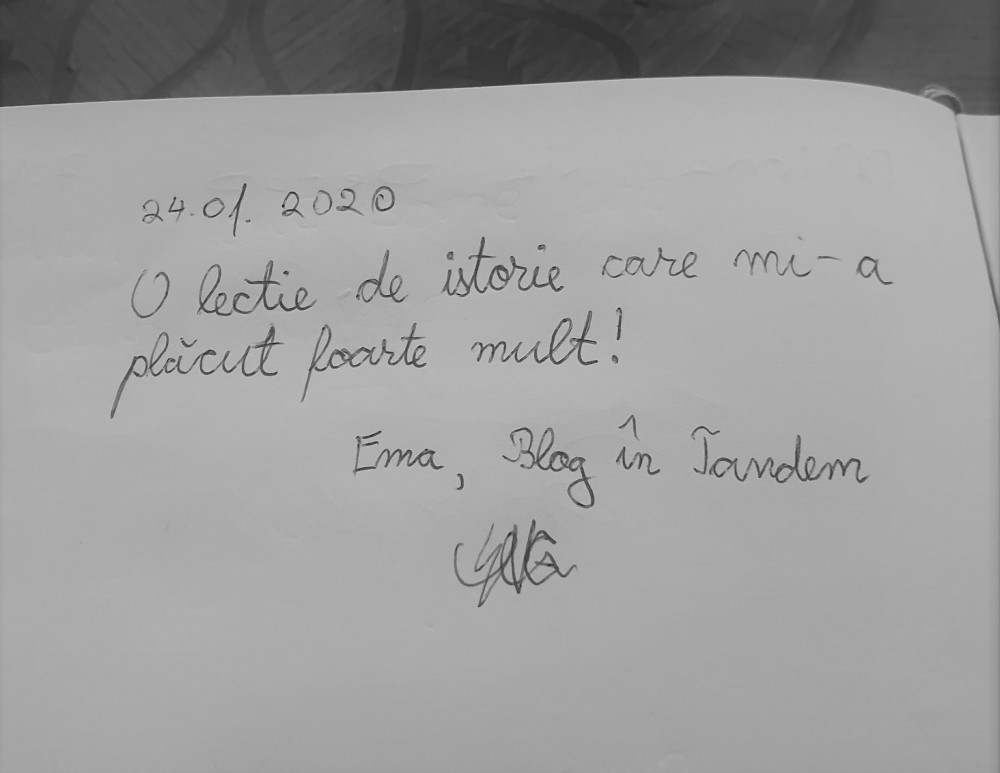 24.01.2020
O lectie de istorie care mi-a
plăcut foarte mult!
Ema, Blog în Tandem